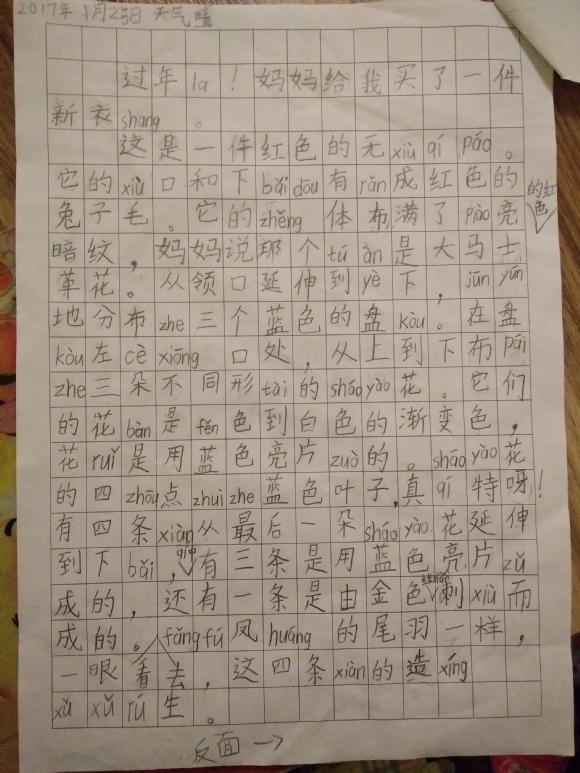 2017年1月25日 天气晴
过年la！妈妈给我买了一件
新衣shang。
这是一件红色的无xiù qí páo。
它的xiù口和下bǎi dōu有rǎn成红色的
兔子毛。它的zhěng体布满了piào亮的红色
暗纹，妈妈说那个tú àn是大马士
革花。从领口延伸到yè下，jūn yún
地分布zhe三个蓝色的盘kòu。在盘
kòu左cè xiōng口处，从上到下布pái
zhe三朵不同形tài的sháo yào花。它们
的花bàn是fěn色到白色的渐变色，
花ruǐ是用蓝色亮片zuò的。sháo yào花
的四zhōu点zhuì zhe蓝色叶子，真qí特呀！
有四条xiàn从最后一朵sháo yào花延伸
到下bǎi，有三条是用蓝色亮片zǔ
成的，还有一条是由金色刺xiù而
成的。fǎng fú凤huáng的尾羽一样，
一眼看去，这四条xiàn的造xíng
xǔ xǔ rú生。
反面→